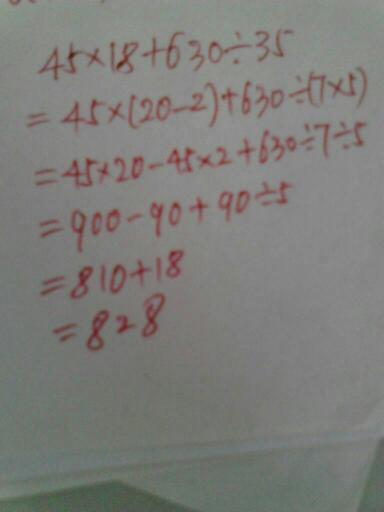 45×18+630÷35
=45×(20-2)+630÷(7×5)
=45×20-45×2+630÷7÷5
=900-90+90÷5
=810+18
=828